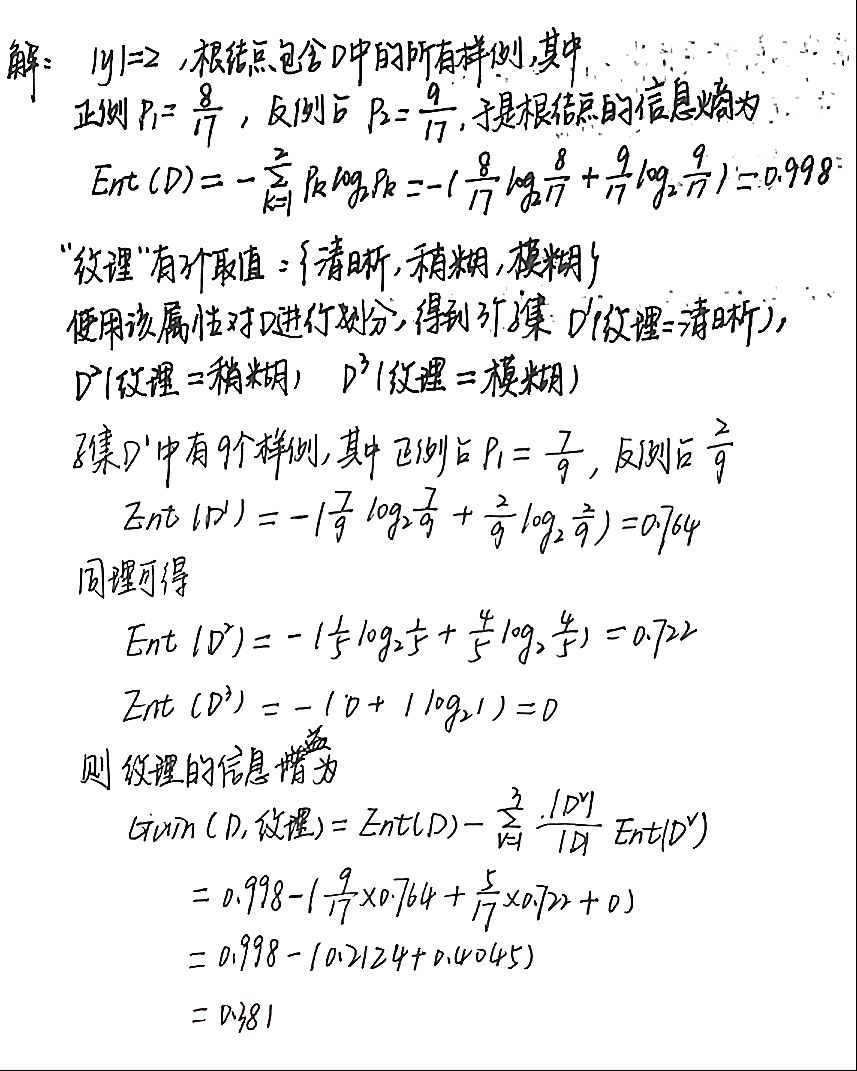 解: |y|=2,根结点包含D中的所有样例,其中
正例 P₁= 8/17 , 反例占 P₂= 9/17, 于是根结点的信息熵为
Ent(D) = -∑(k=1→2) Pk log₂Pk = -(8/17 log₂ 8/17 + 9/17 log₂ 9/17) = 0.998
“纹理”有3个取值:{清晰,稍糊,模糊}
使用该属性对D进行划分,得到3个子集 D¹(纹理=清晰),
D²(纹理=稍糊) D³(纹理=模糊)
子集D¹中有9个样例,其中正例占P₁= 7/9, 反例占 2/9
Ent(D¹) = -(7/9 log₂ 7/9 + 2/9 log₂ 2/9) = 0.764
同理可得
Ent(D²) = -(1/5 log₂ 1/5 + 4/5 log₂ 4/5) = 0.722
Ent(D³) = -(0 + 1 log₂ 1) = 0
则纹理的信息增益为
Gain(D,纹理) = Ent(D) - ∑(v=1→3) |Dᵛ|/|D| Ent(Dᵛ)
= 0.998-(9/17×0.764 + 5/17×0.722 + 0)
= 0.998-(0.2124+0.4045)
= 0.381